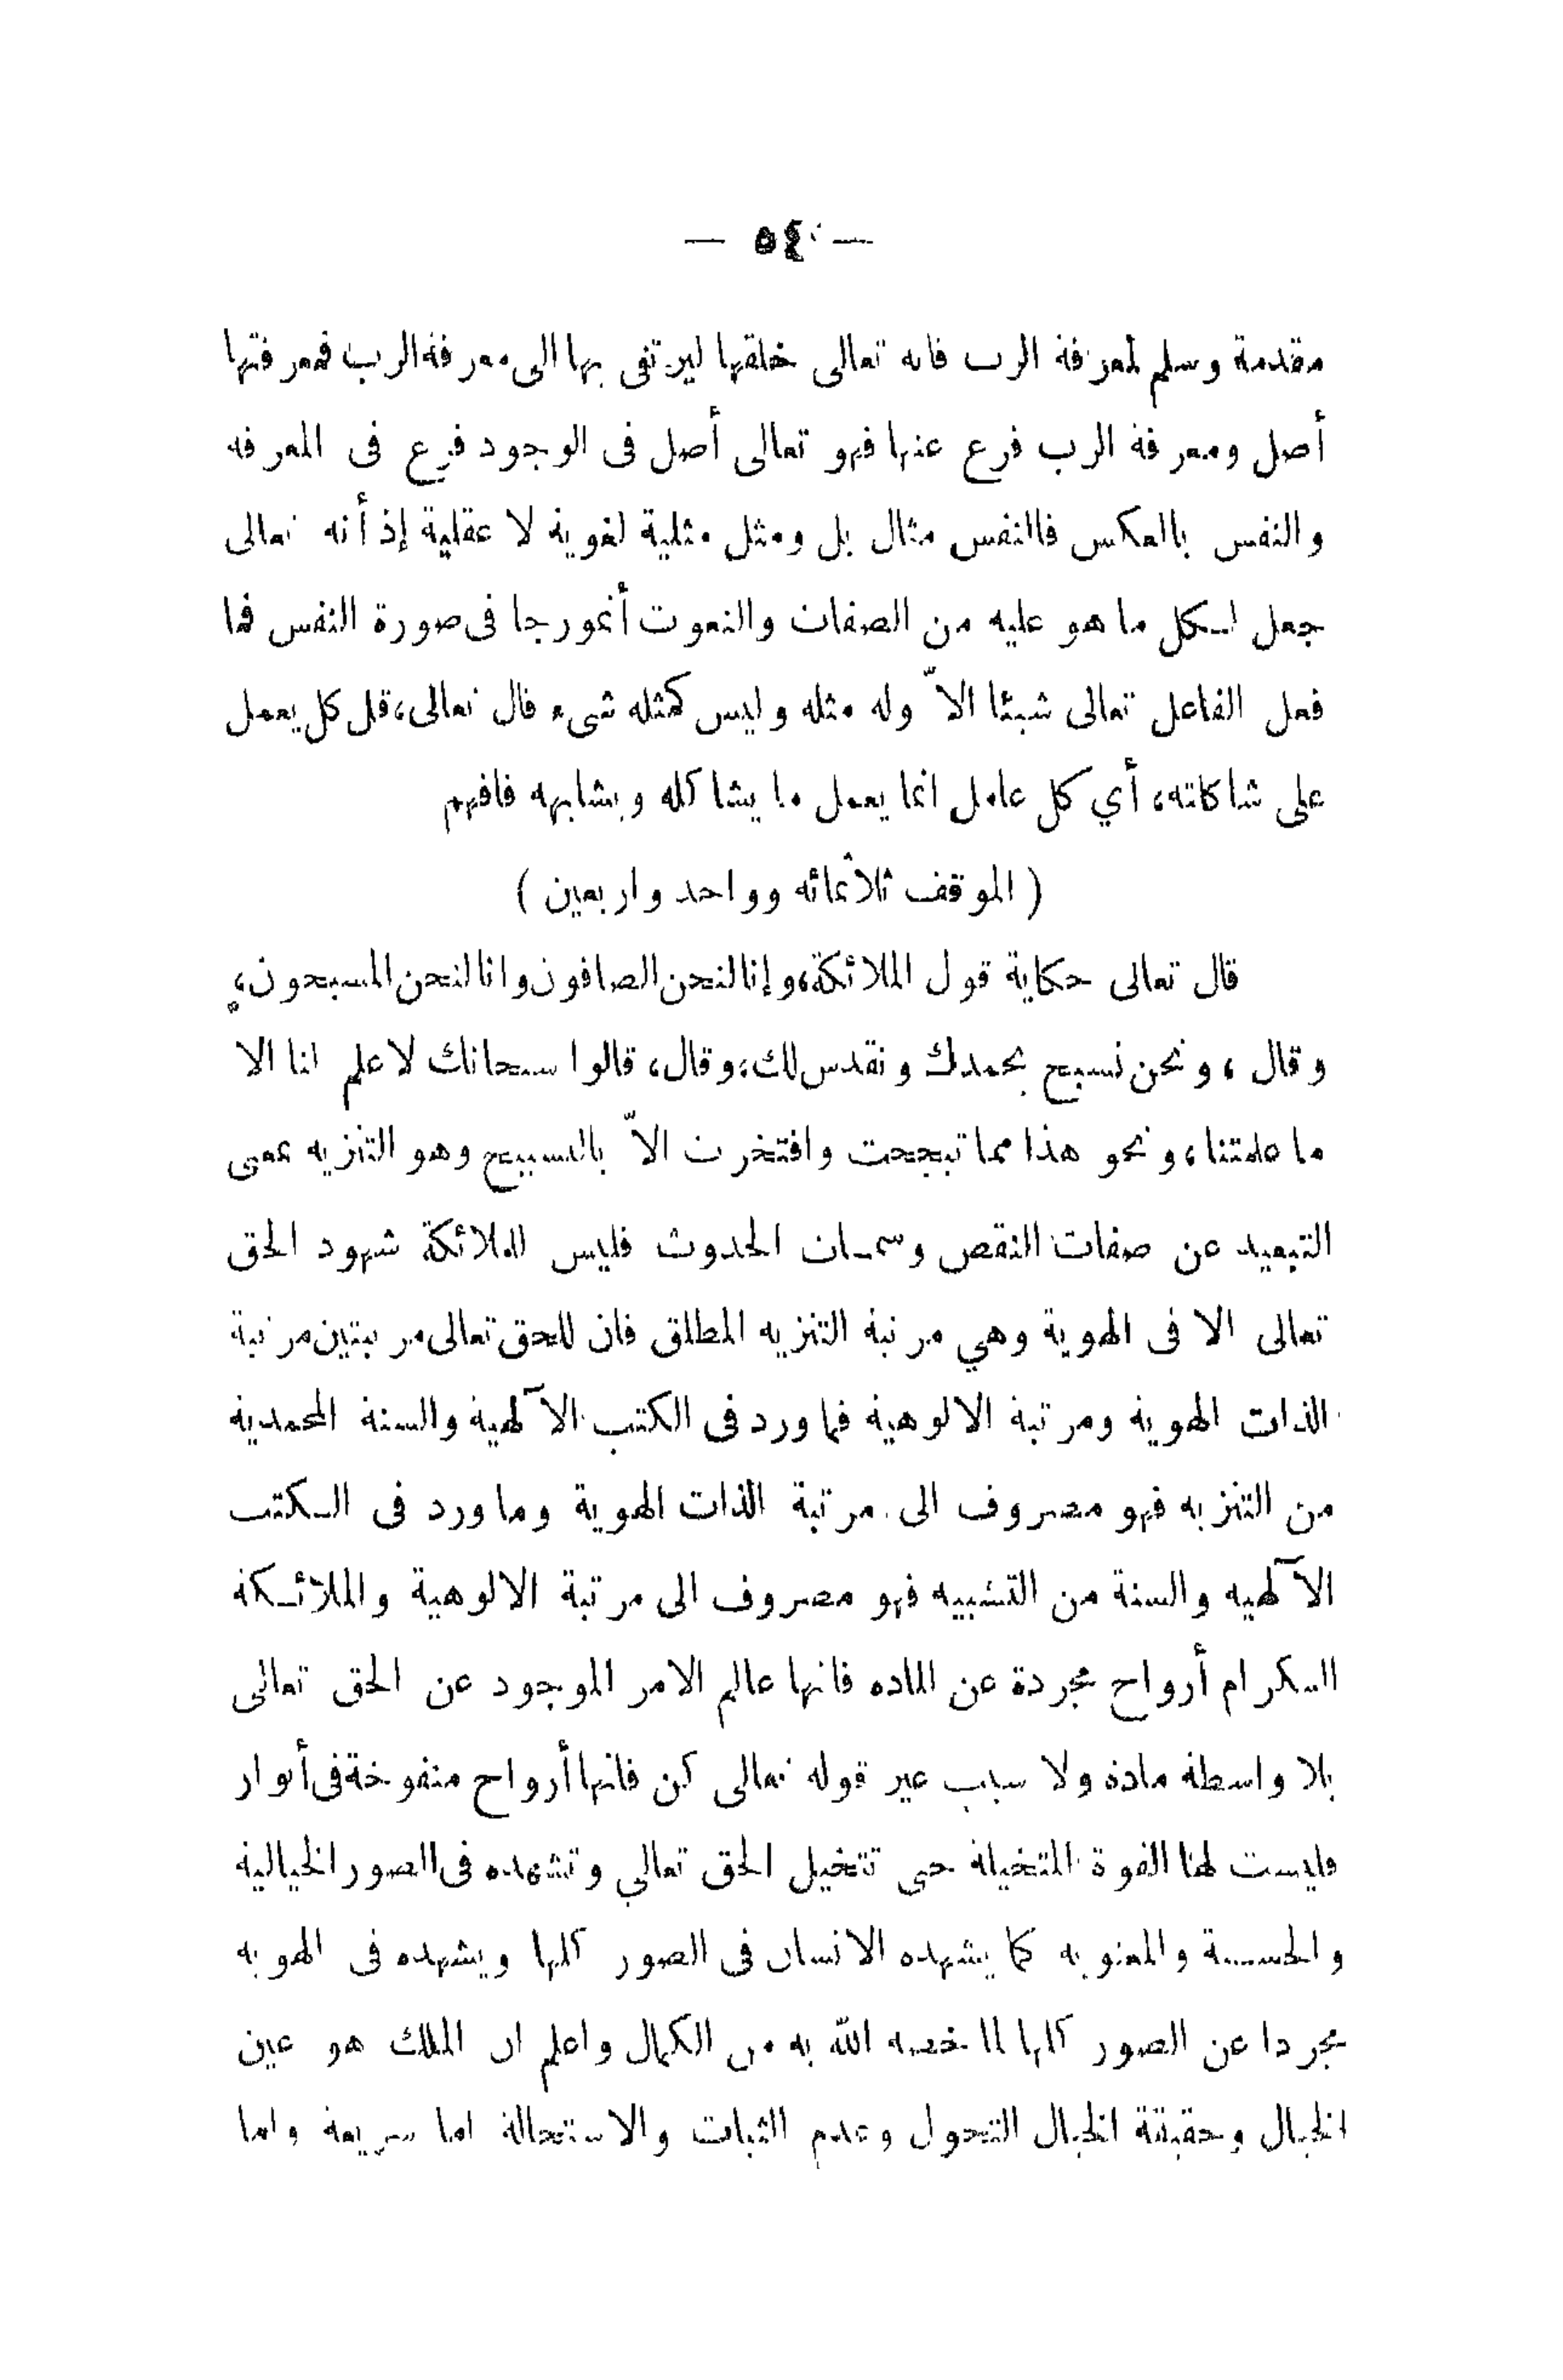 — ٥٤ —
مقدمة وسلم لمعرفة الرب فانه تعالى خلقها ليرتقى بها الى معرفة الرب فمعرفتها
أصل ومعرفة الرب فرع عنها فهو تعالى أصل فى الوجود فرع فى المعرفه
والنفس بالعكس فالنفس مثال بل ومثل مثلية لغوية لا عقلية إذ أنه تعالى
جعل لكل ما هو عليه من الصفات والنعوت أنموذجا فى صورة النفس فما
فعل الفاعل تعالى شيئا الاّ وله مثله وليس كمثله شىء قال تعالى، قل كل يعمل
على شاكلته، أي كل عامل انما يعمل ما يشاكله ويشابهه فافهم
( الموقف ثلاثمائه وواحد واربعين )
قال تعالى حكاية قول الملائكة، وإنا لنحن الصافون وانا لنحن المسبحون،
وقال ، ونحن نسبح بحمدك ونقدس لك، وقال، قالوا سبحانك لا علم لنا الا
ما علمتنا، ونحو هذا مما تبجحت وافتخرت الاّ بالتسبيح وهو التنزيه بمعنى
التبعيد عن صفات النقص وسمات الحدوث فليس للملائكة شهود الحق
تعالى الا فى الهوية وهي مرتبة التنزيه المطلق فان للحق تعالى مرتبتين مرتبة
الذات الهوية ومرتبة الالوهية فما ورد فى الكتب الآلهية والسنة المحمدية
من التنزيه فهو مصروف الى مرتبة الذات الهوية وما ورد فى الكتب
الآلهيه والسنة من التشبيه فهو مصروف الى مرتبة الالوهية والملائكة
الكرام أرواح مجردة عن الماده فانها عالم الامر الموجود عن الحق تعالى
بلا واسطة مادة ولا سبب غير قوله تعالى كن فانها أرواح منفوخة فى أنوار
فليست لها القوة المتخيلة حتى تتخيل الحق تعالي وتشهده فى الصور الخيالية
والحسية والمعنويه كما يشهده الانسان فى الصور كلها ويشهده فى الهويه
مجردا عن الصور كلها لما خصه الله به من الكمال واعلم ان الملك هو عين
الخيال وحقيقة الخيال التحول وعدم الثبات والاستحالة اما سريعة واما